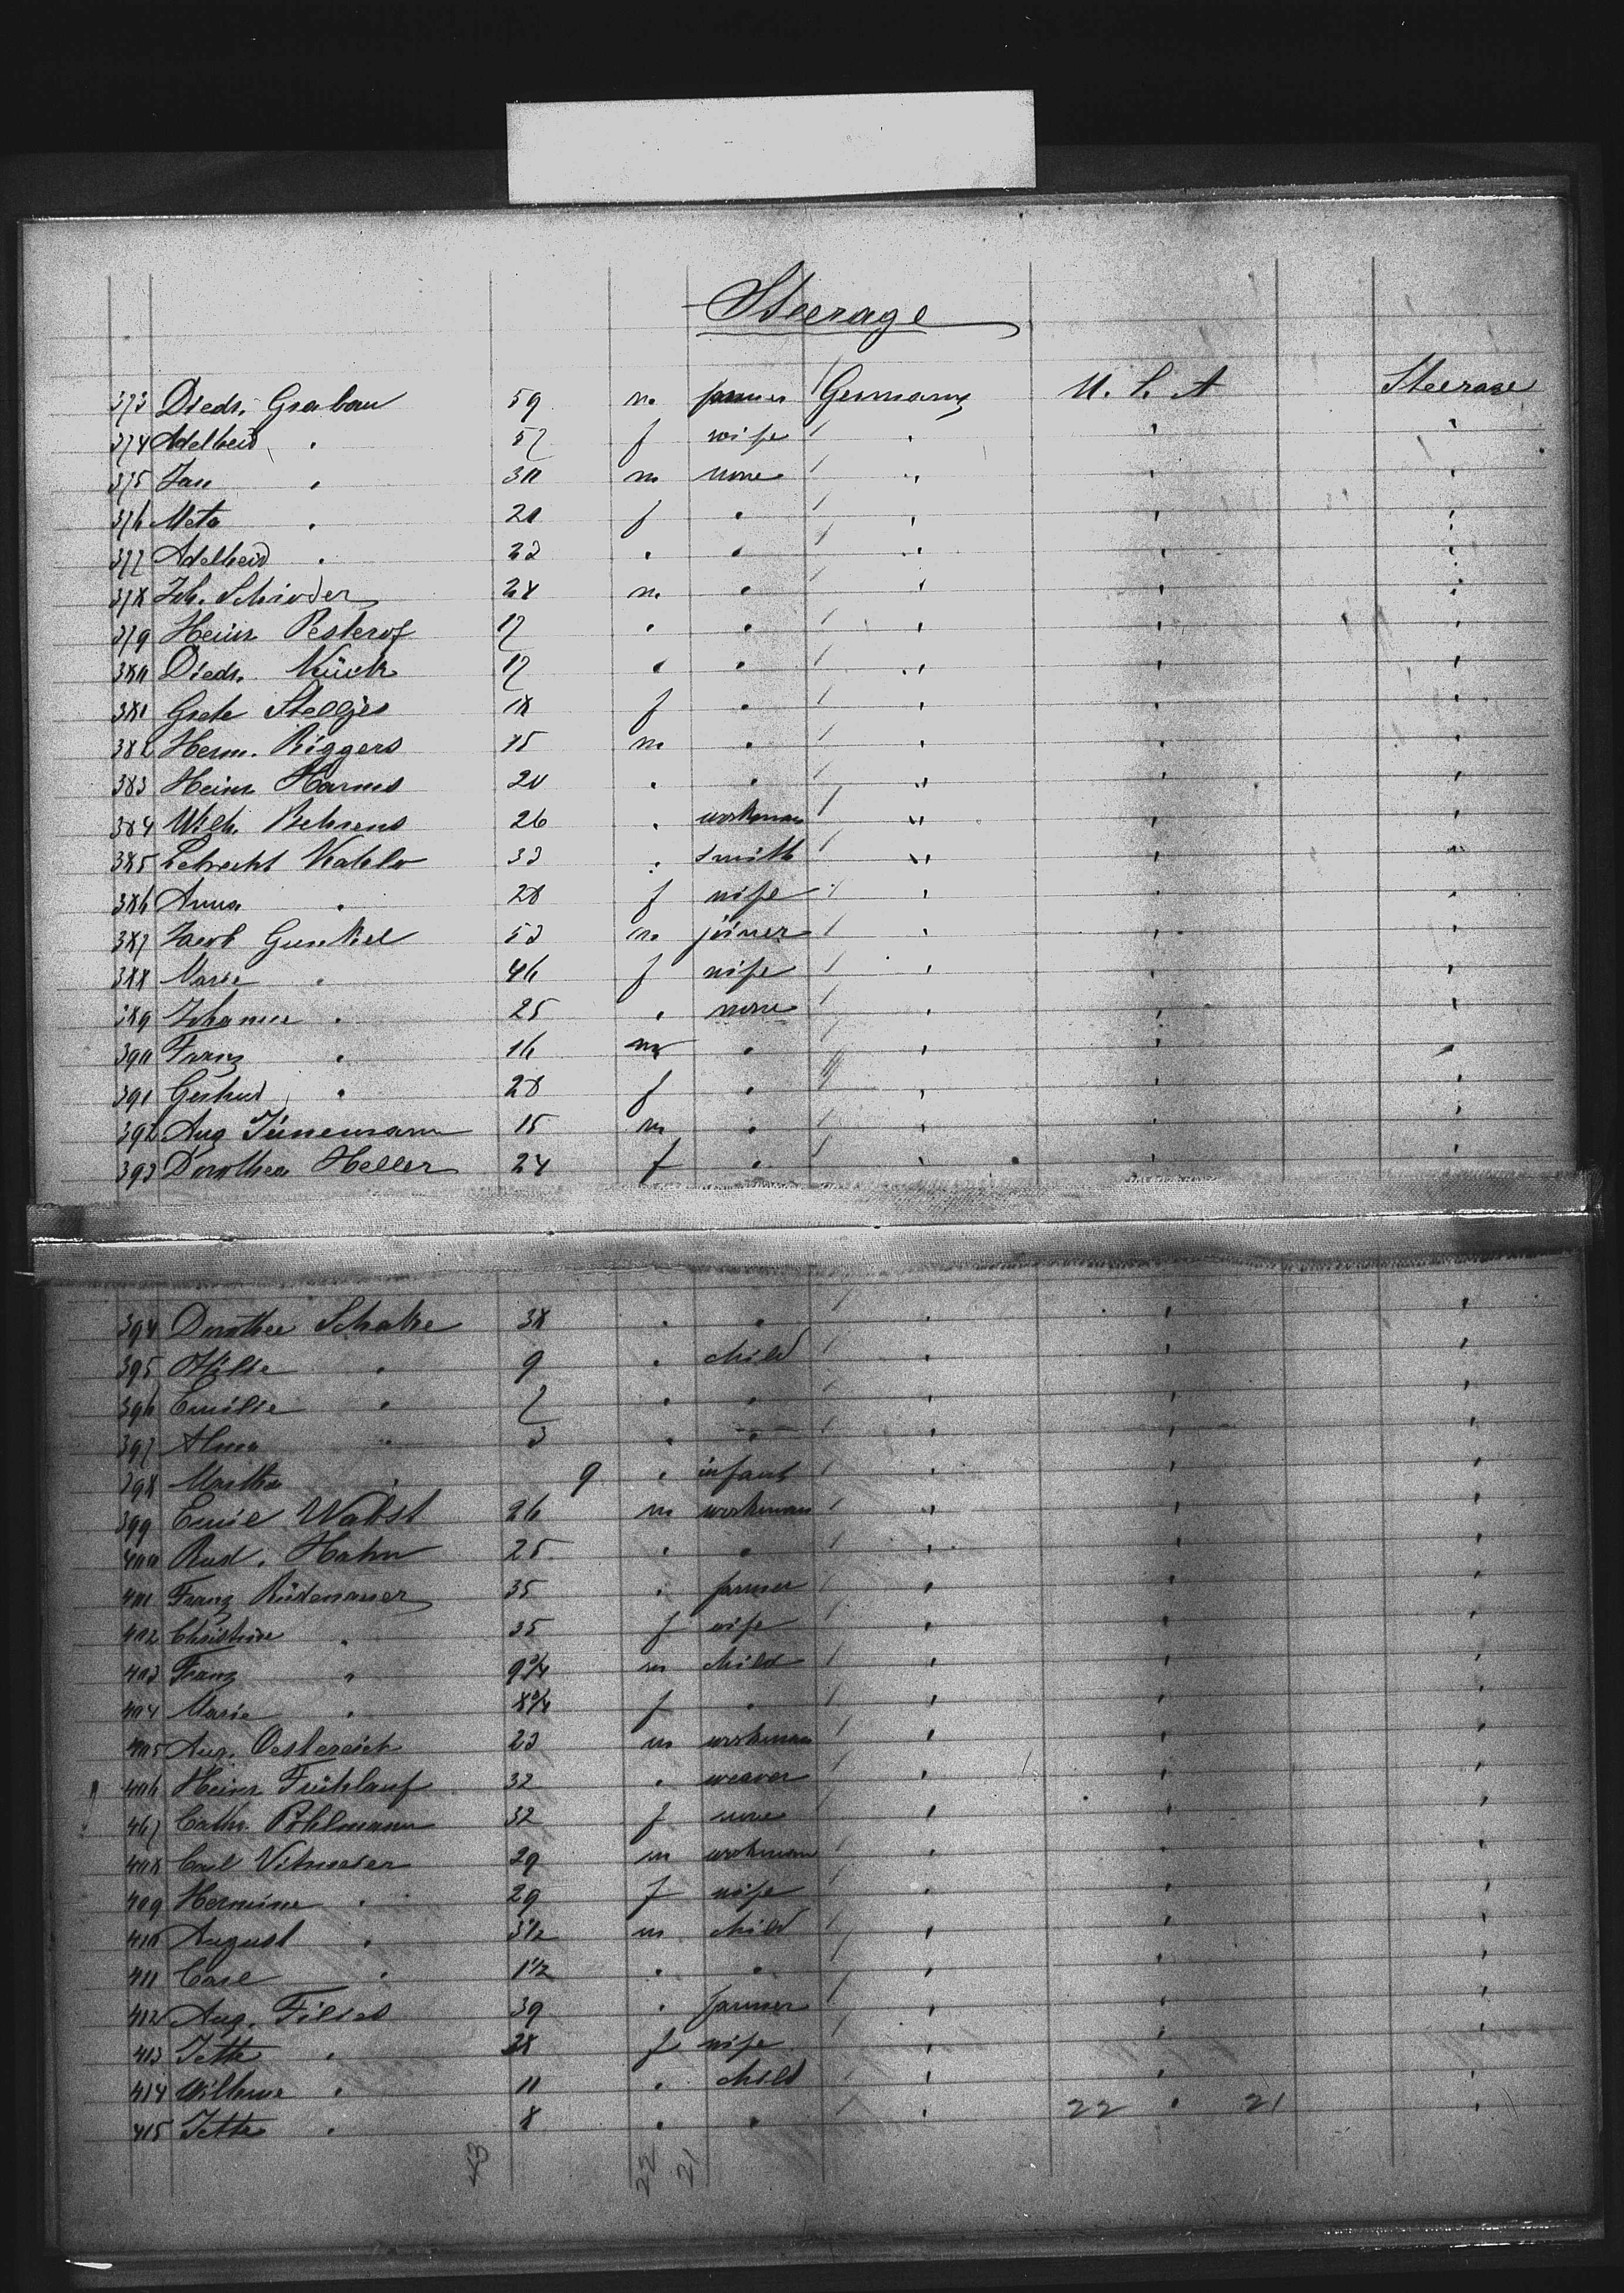 Steerage
373 Diedr. Grabau 59 m. farmer Germany U. S. A Steerage
374 Adelheid " 57 f wife " " "
375 Jan " 30 m none " " "
376 Meta " 20 f " " " "
377 Adelheid " 23 " " " " "
378 Joh. Schröder 28 m. " " " "
379 Heinr Pesterof 17 " " " " "
380 Diedr. Kück 17 " " " " "
381 Grete Stelljes 18 f " " " "
382 Herm. Riggers 15 m " " " "
383 Heinr Harms 20 " " " " "
384 Wilh. Behrens 26 " workman " " "
385 Lebrecht Kahlo 33 " smith " " "
386 Anna " 28 f wife " " "
387 Jacob Gunkel 53 m joiner " " "
388 Marie " 46 f wife " " "
389 Johanne " 25 " none " " "
390 Franz " 16 m " " " "
391 Gertrud " 28 f " " " "
392 Aug Jünemann 15 m " " " "
393 Dorothea Heller 24 f " " " "
394 Dorothee Schake 38 " " " " "
395 " 9 " child " " "
396 Emilie " 7 " " " " "
397 Alma " 3 " " " " "
398 Martha " 9 " infant " " "
399 Emil Wabst 26 m workman " " "
400 Rud. Hahn 25 " " " " "
401 Franz Rüdenauer 35 " farmer " " "
402 Christine " 35 f wife " " "
403 Franz " 9 3/4 m child " " "
404 Marie " 8 3/4 f " " " "
405 Aug. Oestereich 23 m workman " " "
406 Heinr Frühlauf 32 " weaver " " "
407 Cathr. Pöhlmann 32 f none " " "
408 Carl Vitmeier 29 m workman " " "
409 Hermine " 29 f wife " " "
410 August " 3 1/2 m child " " "
411 Carl " 1 1/2 " " " " "
412 Aug. Filies 39 " farmer " " "
413 Jette " 38 f wife " " "
414 Wilhme " 11 " child " " "
415 Jette " 8 " " " 22 " 21 "
43 22 21